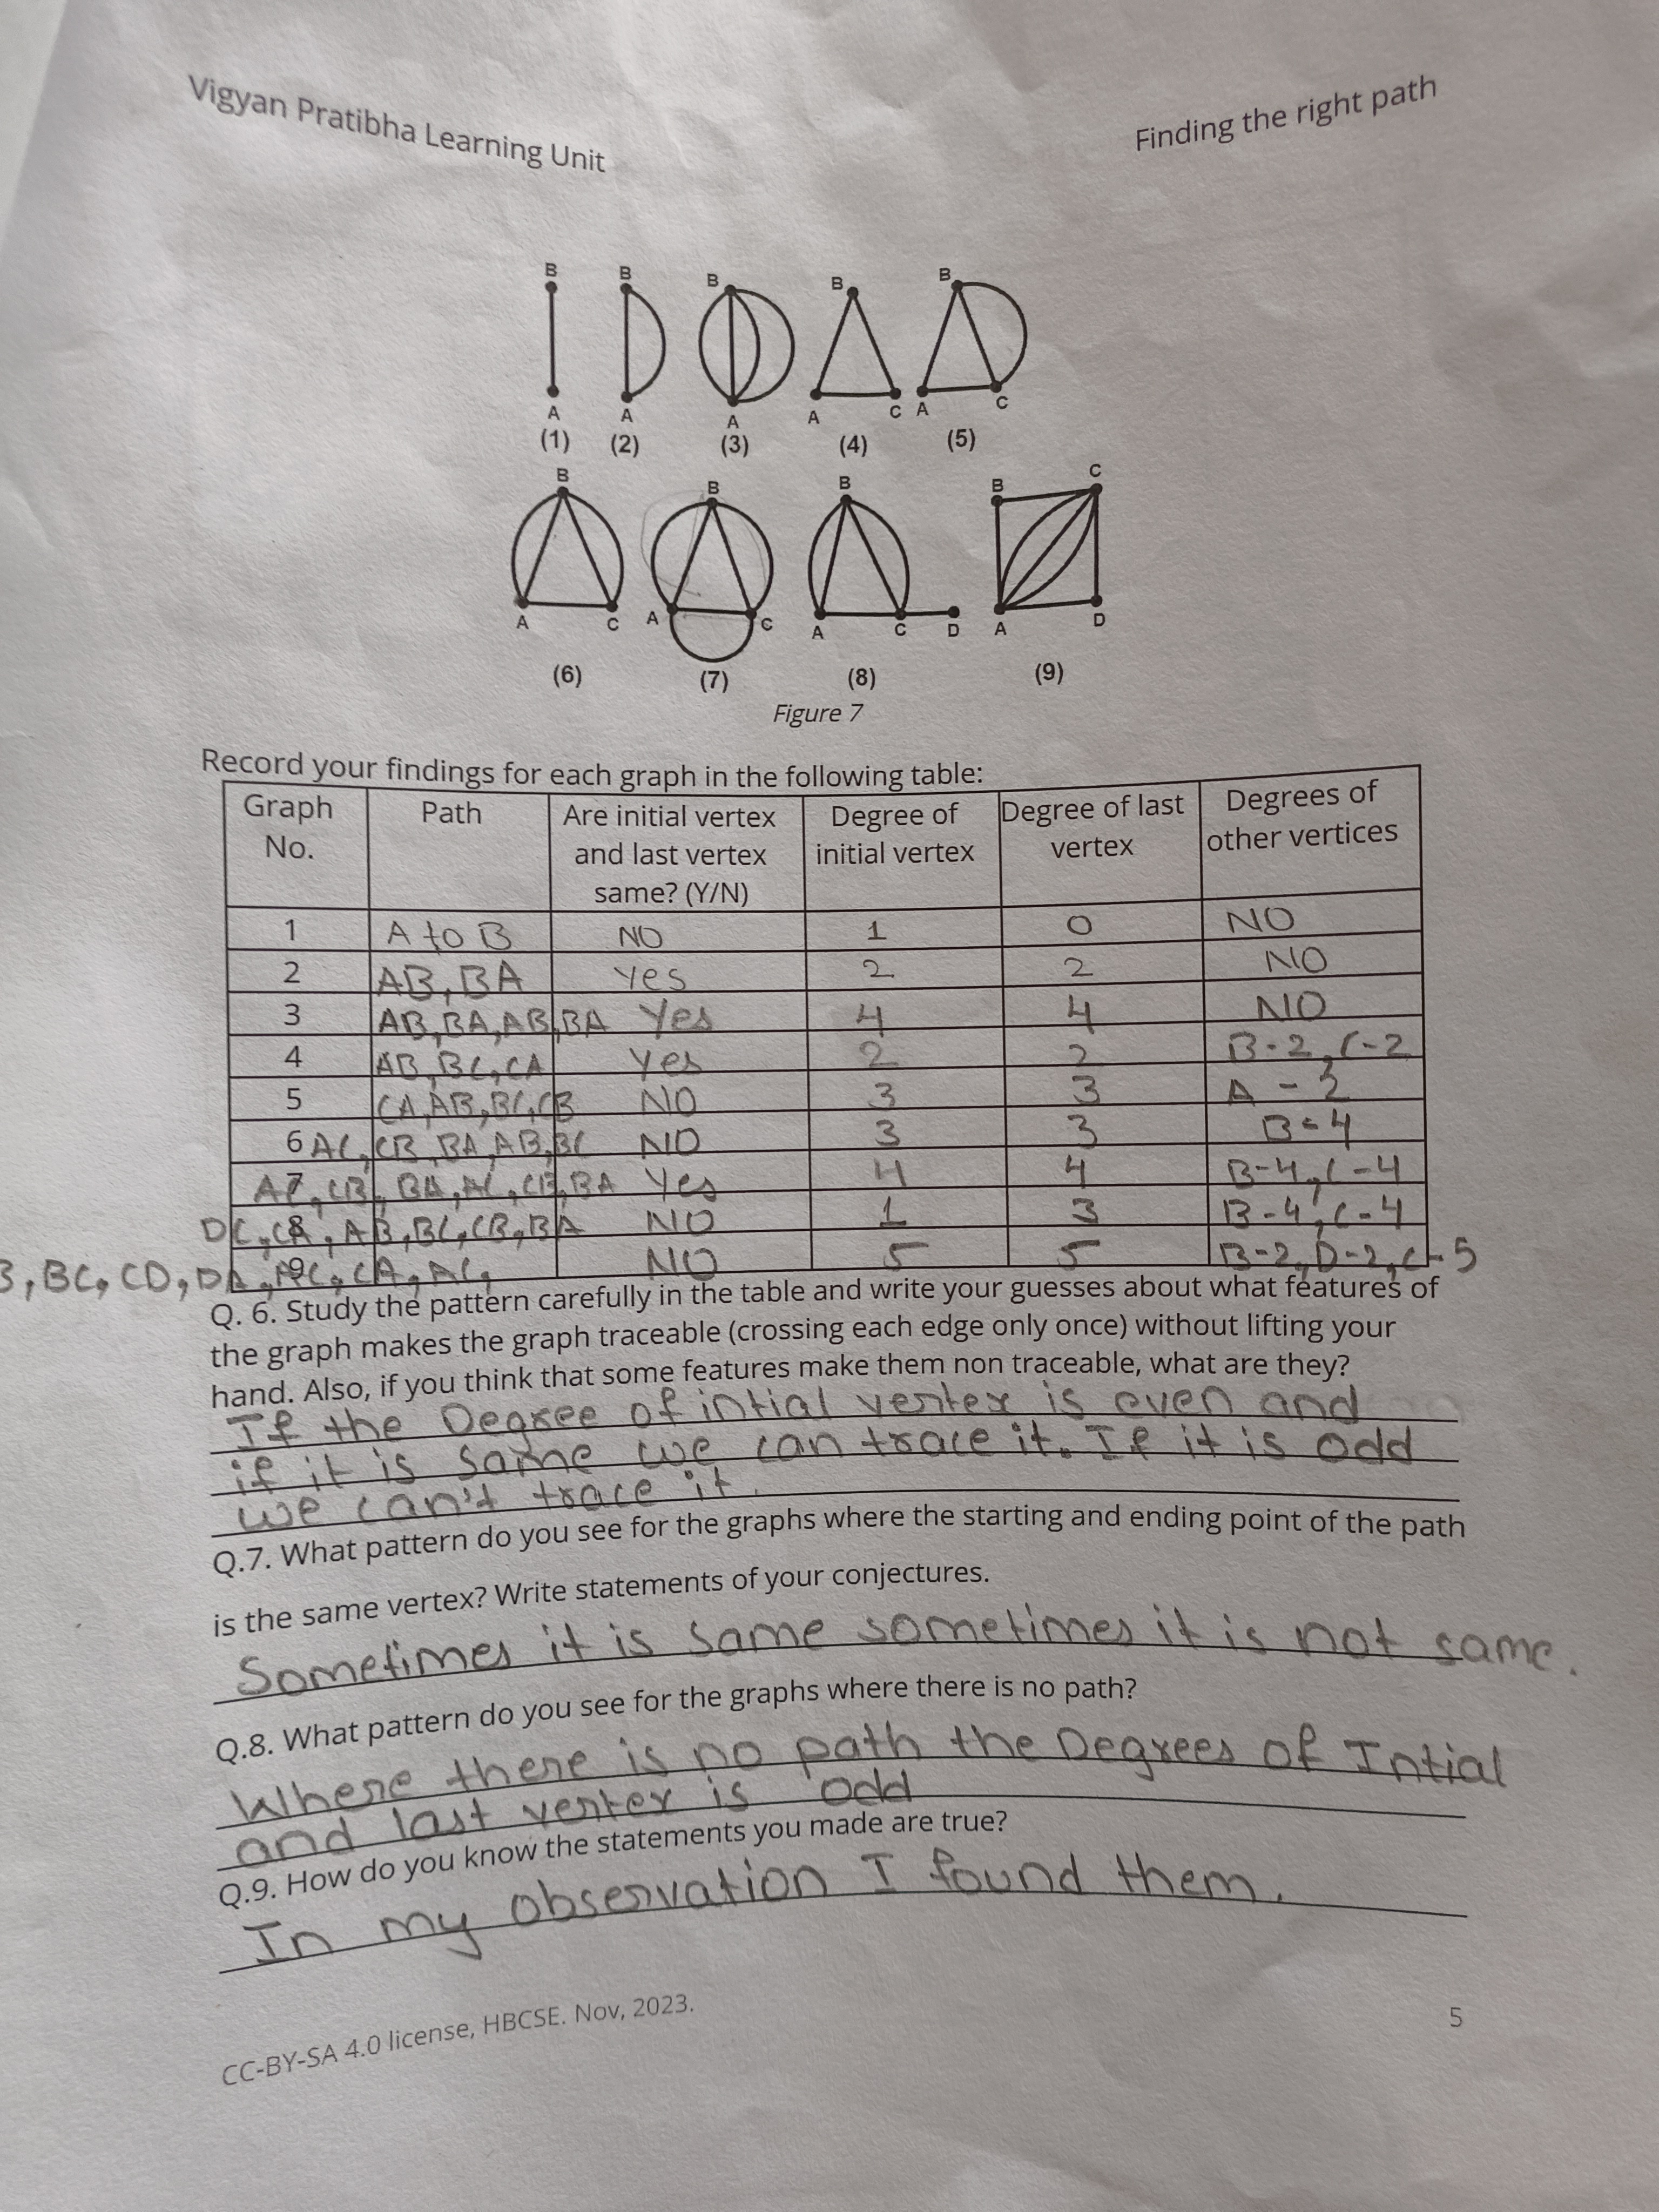 Vigyan Pratibha Learning Unit
Finding the right path
B B B B B
A A A A C A C
(1) (2) (3) (4) (5)
B B B B C
A C A C A C D A D
(6) (7) (8) (9)
Figure 7
Record your findings for each graph in the following table:
Graph No. Path Are initial vertex and last vertex same? (Y/N) Degree of initial vertex Degree of last vertex Degrees of other vertices
1 A to B NO 1 0 NO
2 AB, BA Yes 2 2 NO
3 AB, BA, AB, BA Yes 4 4 NO
4 AB, BC, CA Yes 2 2 B-2, C-2
5 CA, AB, BC, CB NO 3 3 A - 2
6 AC, CB, BA, AB, BC NO 3 3 B = 4
7 AC, CB, BA, AC, CB, BA Yes 4 4 B-4, C-4
8 DC, CA, AB, BC, CB, BA NO 1 3 B-4, C-4
9 B, BC, CD, DA, AC, CA, AC, NO 5 5 B-2, D-2, C-5
Q. 6. Study the pattern carefully in the table and write your guesses about what features of
the graph makes the graph traceable (crossing each edge only once) without lifting your
hand. Also, if you think that some features make them non traceable, what are they?
If the Degree of intial vertex is even and
if it is same we can trace it. If it is odd
we can't trace it.
Q.7. What pattern do you see for the graphs where the starting and ending point of the path
is the same vertex? Write statements of your conjectures.
Sometimes it is same sometimes it is not same.
Q.8. What pattern do you see for the graphs where there is no path?
Where there is no path the Degrees of Intial
and last vertex is odd
Q.9. How do you know the statements you made are true?
In my observation I found them.
CC-BY-SA 4.0 license, HBCSE. Nov, 2023.
5